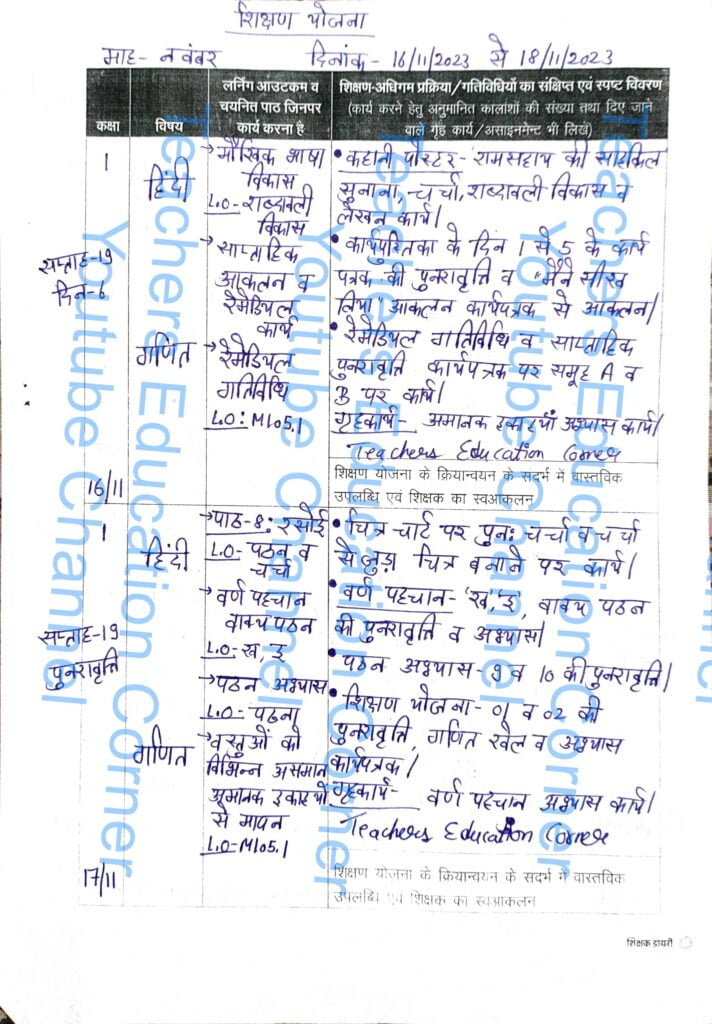 शिक्षण योजना
माह- नवंबर दिनांक- 16/11/2023 से 18/11/2023
कक्षा
विषय
लर्निंग आउटकम व
चयनित पाठ जिनपर
कार्य करना है
शिक्षण-अधिगम प्रक्रिया/गतिविधियों का संक्षिप्त एवं स्पष्ट विवरण
(कार्य करने हेतु अनुमानित कालांशों की संख्या तथा दिए जाने
वाले गृह कार्य/असाइनमेन्ट भी लिखें)
1
सप्ताह-19
दिन-6
16/11
हिंदी
गणित
→मौखिक भाषा
विकास
L.O-शब्दावली
विकास
→साप्ताहिक
आकलन व
रेमेडियल
कार्य
→रेमेडियल
गतिविधि
L.O: M105.1
• कहानी पोस्टर- रामसहाय की साइकिल
सुनाना, चर्चा, शब्दावली विकास व
लेखन कार्य।
• कार्यपुस्तिका के दिन 1 से 5 के कार्य
पत्रक की पुनरावृत्ति व "मैंने सीख
लिया" आकलन कार्यपत्रक से आकलन।
• रेमेडियल गतिविधि व साप्ताहिक
पुनरावृत्ति कार्यपत्रक पर समूह A व
B पर कार्य।
गृहकार्य- अमानक इकाइयाँ अभ्यास कार्य।
Teachers Education Corner
शिक्षण योजना के क्रियान्वयन के सदर्भ में वास्तविक
उपलब्धि एवं शिक्षक का स्वआकलन
1
सप्ताह-19
पुनरावृत्ति
17/11
हिंदी
गणित
→पाठ-8: रसोई
L.O- पठन व
चर्चा
→वर्ण पहचान
वाक्य पठन
L.O- ख, इ
→पठन अभ्यास
L.O- पठना
→वस्तुओं को
विभिन्न असमान
अमानक इकाइयों
से मापन
L.O-M105.1
• चित्र चार्ट पर पुन: चर्चा व चर्चा
से जुड़ा चित्र बनाने पर कार्य।
• वर्ण पहचान- 'ख', 'इ', वाक्य पठन
की पुनरावृत्ति व अभ्यास।
• पठन अभ्यास-9 व 10 की पुनरावृत्ति।
• शिक्षण योजना- 01 व 02 की
पुनरावृत्ति, गणित खेल व अभ्यास
कार्यपत्रक।
गृहकार्य- वर्ण पहचान अभ्यास कार्य।
Teachers Education Corner
शिक्षण योजना के क्रियान्वयन के सदर्भ में वास्तविक
उपलब्धि एवं शिक्षक का स्वआकलन
शिक्षक डायरी
Teachers Education Corner
Youtube Channel
Teachers Education Corner
Youtube Channel
Teachers Education Corner
Youtube Channel